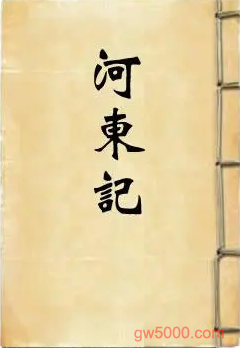 河東記
gw5000.com